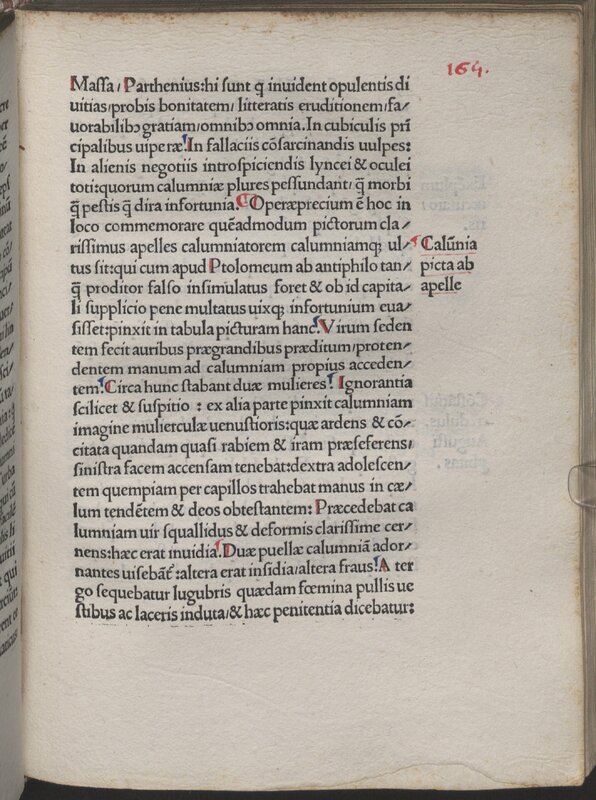 164.
Massa/Parthenius:hi sunt q inuident opulentis di
uitias/probis bonitatem/litteratis eruditionem/fa/
uorabilibꝫ gratiam/omnibꝫ omnia.In cubiculis prī
cipalibus uiperæ.In fallaciis cōsarcinandis uulpes:
In alienis negotiis introspiciendis lyncei & oculei
toti:quorum calumniæ plures pessundant/q̄ morbi
q̄ pestis q̄ dira infortunia.Operæprecium ē hoc in
loco commemorare quēadmodum pictorum cla/
rissimus apelles calumniatorem calumniamqꝫ ul/
tus sit:qui cum apud Ptolomeum ab antiphilo tan/
q̄ proditor falso insimulatus foret & ob id capita/
li supplicio pene multatus uixqꝫ infortunium eua/
sisset:pinxit in tabula picturam hanc.Virum seden
tem fecit auribus prægrandibus præditum/proten/
dentem manum ad calumniam propius acceden/
tem.Circa hunc stabant duæ mulieres.Ignorantia
scilicet & suspitio : ex alia parte pinxit calumniam
imagine mulierculæ uenustioris:quæ ardens & cō/
citata quandam quasi rabiem & iram præseferens/
sinistra facem accensam tenebat:dextra adolescen/
tem quempiam per capillos trahebat manus in cæ/
lum tendētem & deos obtestantem: Præcedebat ca
lumniam uir squallidus & deformis clarissime cer/
nens:hæc erat inuidia.Duæ puellæ calumniā ador/
nantes uisebāt :altera erat insidia/altera fraus.A ter
go sequebatur lugubris quædam fœmina pullis ue
stibus ac laceris induta/& hæc penitentia dicebatur:
Calūnia
picta ab
apelle